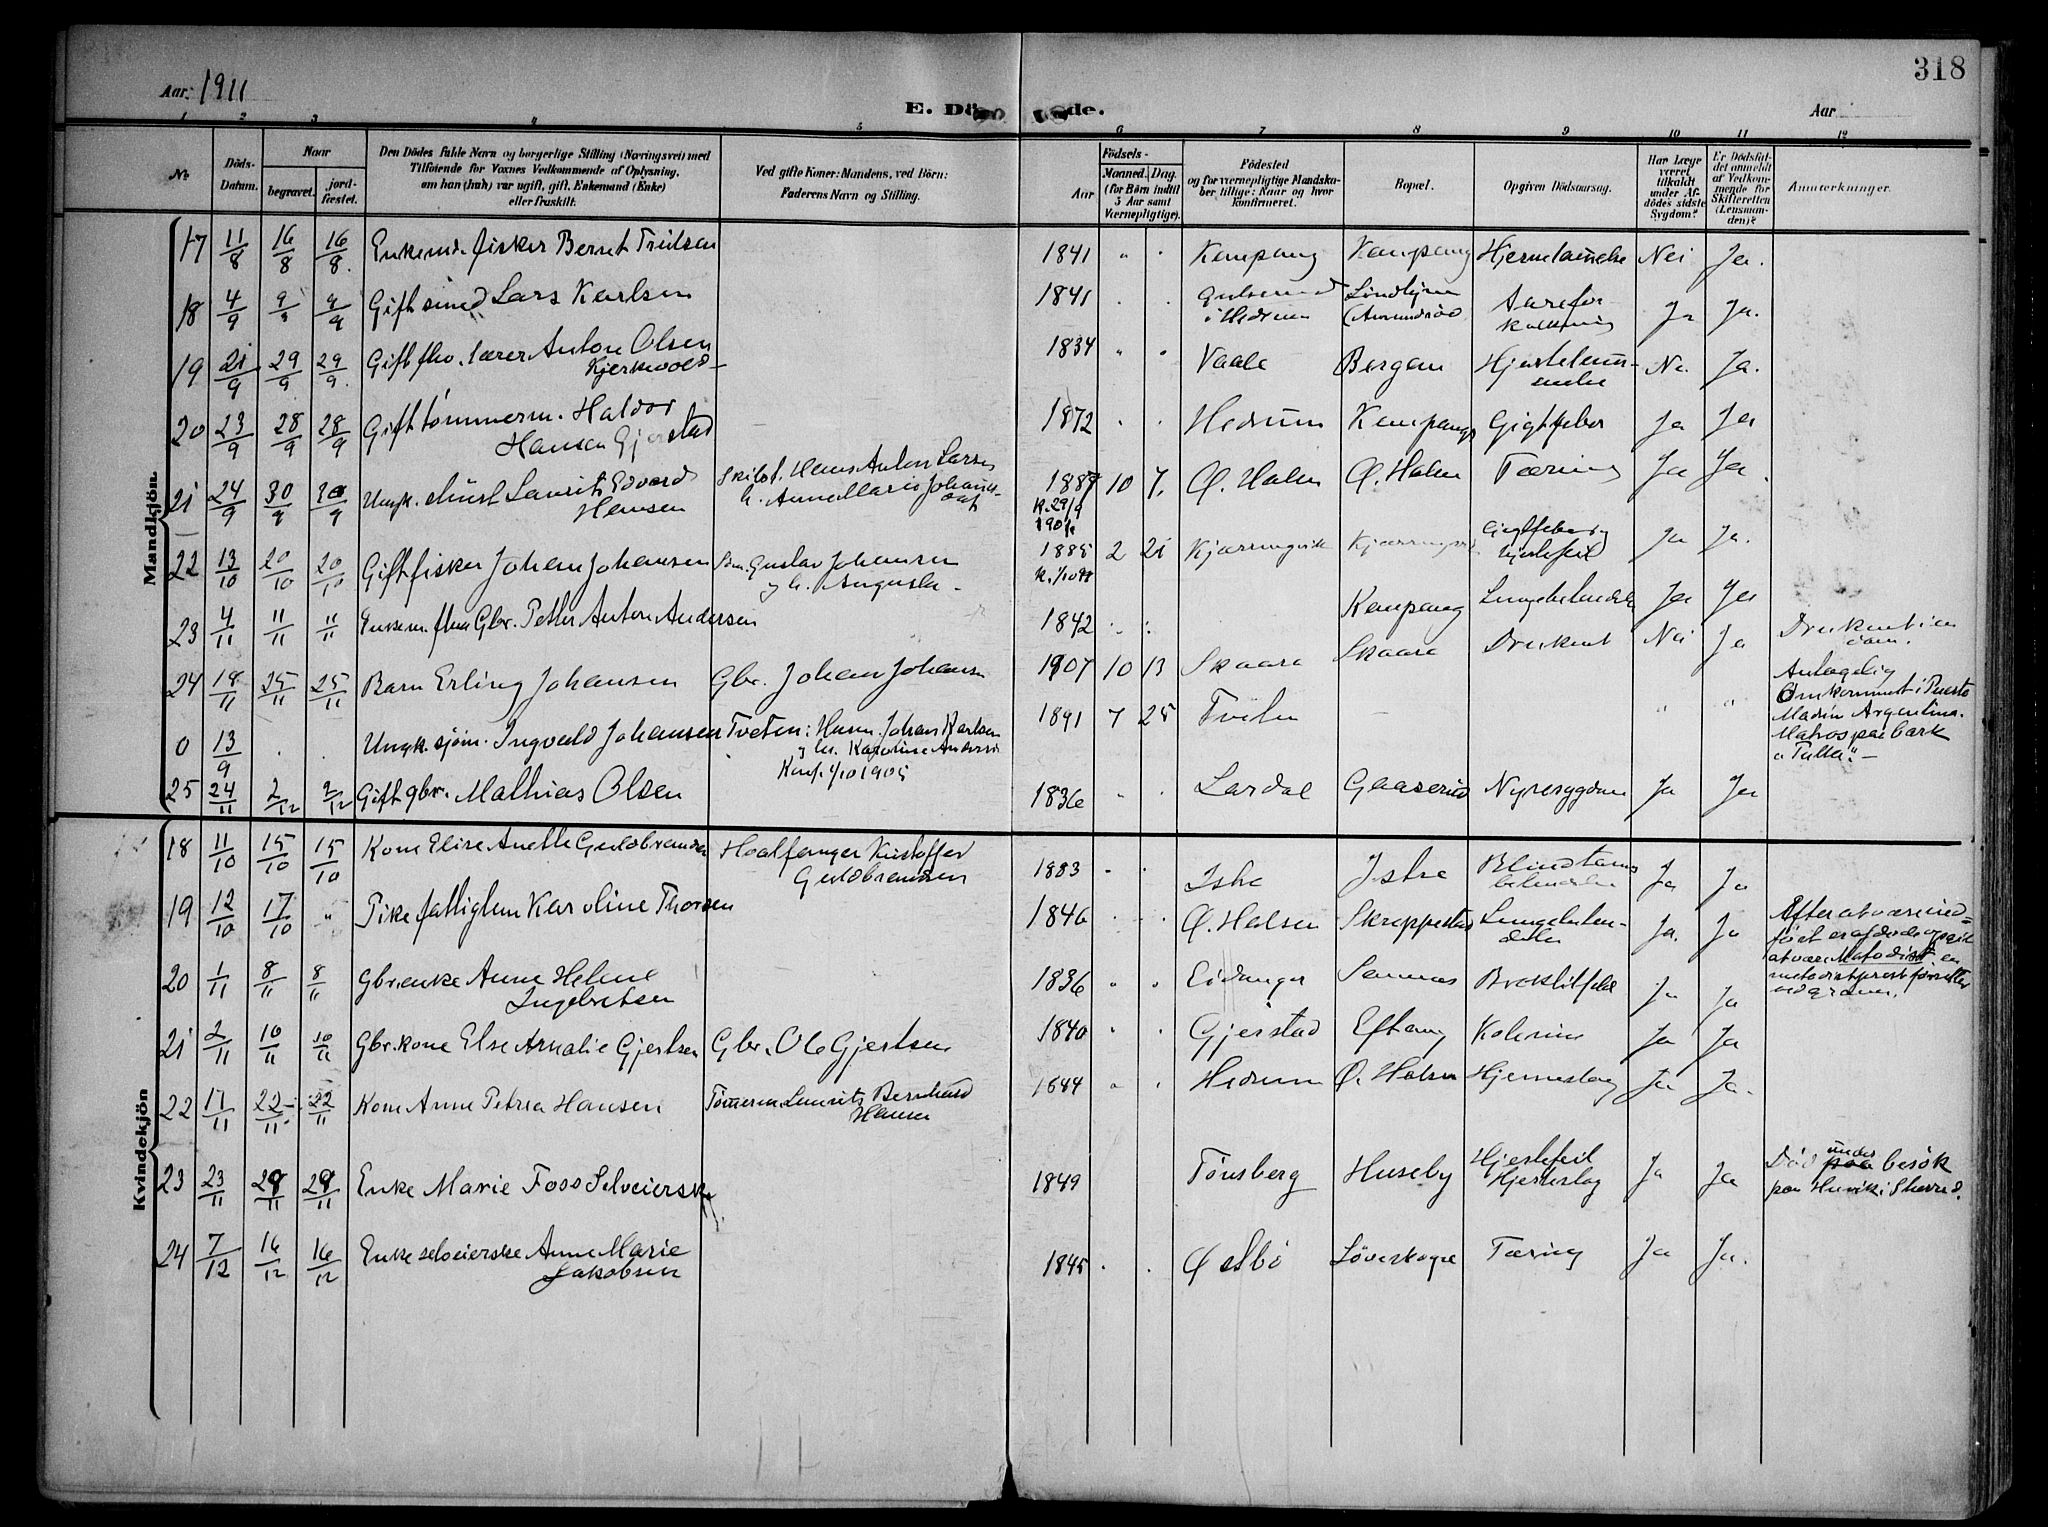 318
Aar: 1911
E. Dö de.
Aar
1 2 3 4 5 6 7 8 9 10 11 12
№
Döds-Datum.
Naar
begravet.
jord-fæstet.
Den Dödes fulde Navn og borgerlige Stilling (Næringsvei) med
Tilföiende for Voxnes Vedkommende af Oplysning,
om han (hun) var ugift, gift, Enkemand (Enke)
eller fraskilt.
Ved gifte Koner: Mandens, ved Börn:
Faderens Navn og Stilling.
Födsels-
Aar
Maaned. Dag.
(for Börn indtil
5 Aar samt
Værnepligtige).
Födested
og for værnepligtige Mandska-
ber tillige: Naar og hvor
konfirmeret.
Bopæl.
Opgiven Dödsaarsag.
Har Læge
været
tilkaldt
under Af-
dödes sidste
Sygdom?
Er Dödsfal-
det anmeldt
af Vedkom-
mende for
Skifteretten
(Lensman-
den)?
Anmærkninger.
Mandkjön.
17 11/8 16/8 16/8. Enkemd. fisker Bernt Truelsen 1841 " " Kampang Kampang Hjernelammelse Nei Ja.
18 4/9 9/9 9/9 Gift smed Lars Karlsen 1841 . . i Hedrum Aarefor-
kalkning Ja Ja.
19 21/9 29/9 29/9. Gift fhv. lærer Anton Olsen
Kjerkvold 1834 " " Vaale Bergan Ne. Ja.
20 23/9 28/9 28/9 Gift tømmerm. Haldor
Hansen Gjerstad 1872 . . Hedrum Kampang Gigtfeber Ja Ja
21 24/9 30/9 30/9 Ungk. Laurits Edvard
Hansen Hans Anton Larsen
h. Anne Marie Johans-
datt 1887 10 7. Ø. Halsen Ø. Halsen Tæring Ja Ja
K. 29/9
22 13/10 20/10 20/10 Gift fisker Johan Johansen Gustav Johansen
og h. Augusta 1885 2 21 Kjærringvik Kjærringvik Gigtfeber og
hjertefeil Ja Ja.
23 4/11 11/11 11/11 Enkem. fhv. Gbr. Petter Anton Andersen 1842 . . Kampang Lungebetændelse Ja Ja
24 18/11 25/11 25/11 Barn Erling Johansen Gbr. Johan Johansen 1907 10 13 Skaara Skaara Druknet Nei Ja Druknet i en
dam.
0 13/9 . . Ungk. sjøm. Ingvald Johansen Tveten: Husm. Johan Karlsen
og h. Karoline Anderss.
Konf. 1/10 1905 1891 7 25 Tveten — " " Antagelig
omkommet i Puerto
Madrin Argentina.
Matros paa bark
"Tulla". —
25 24/11 2/12 2/12 Gift gbr. Mathias Olsen 1836 . . Lardal Gaaserud Nyresygdom Ja Ja
Kvindekjön
18 11/10 15/10 15/10 Kone Elise Anette Guldbrandsen Hvalfanger Kristoffer
Guldbrandsen 1883 . . Istre Istre Blindtarms
betændelse Ja Ja
19 12/10 17/10 " Pike fattiglem Karoline Thorsen 1846 . . Ø. Halsen Skreppestad Lungebeten-
delse Ja. Ja Efter at være ind-
ført er afdøde opgit
at være Metodist, en
metodistprest forrettet
ved graven.
20 1/11 8/11 8/11 Gbr.enke Anne Helene
Ingebretsen 1836 " " Eidanger Sannes Brok Ja Ja
21 2/11 10/11 10/11 Gbr.kone Else Amalie Gjertsen Gbr. Ole Gjertsen 1840 " . Gjerstad Eftang Kolerine Ja Ja
22 17/11 22/11 22/11 Kone Anne Petrea Hansen Tømerm. Laurits Bernhard
Hansen 1844 " . Hedrum Ø. Halsen Hjerneslag Ja Ja.
23 23/11 29/11 29/11 Enke Marie Foss Selveierske 1849 Tønsberg Huseby Hjertefeil
Hjerneslag Ja Ja Død under besøk
paa Huvik i Skovd.
24 7/12 16/12 16/12 Enke selveierske Anne Marie
Jakobsen 1845 . . Østbø Løveskogen Tæring Ja Ja.